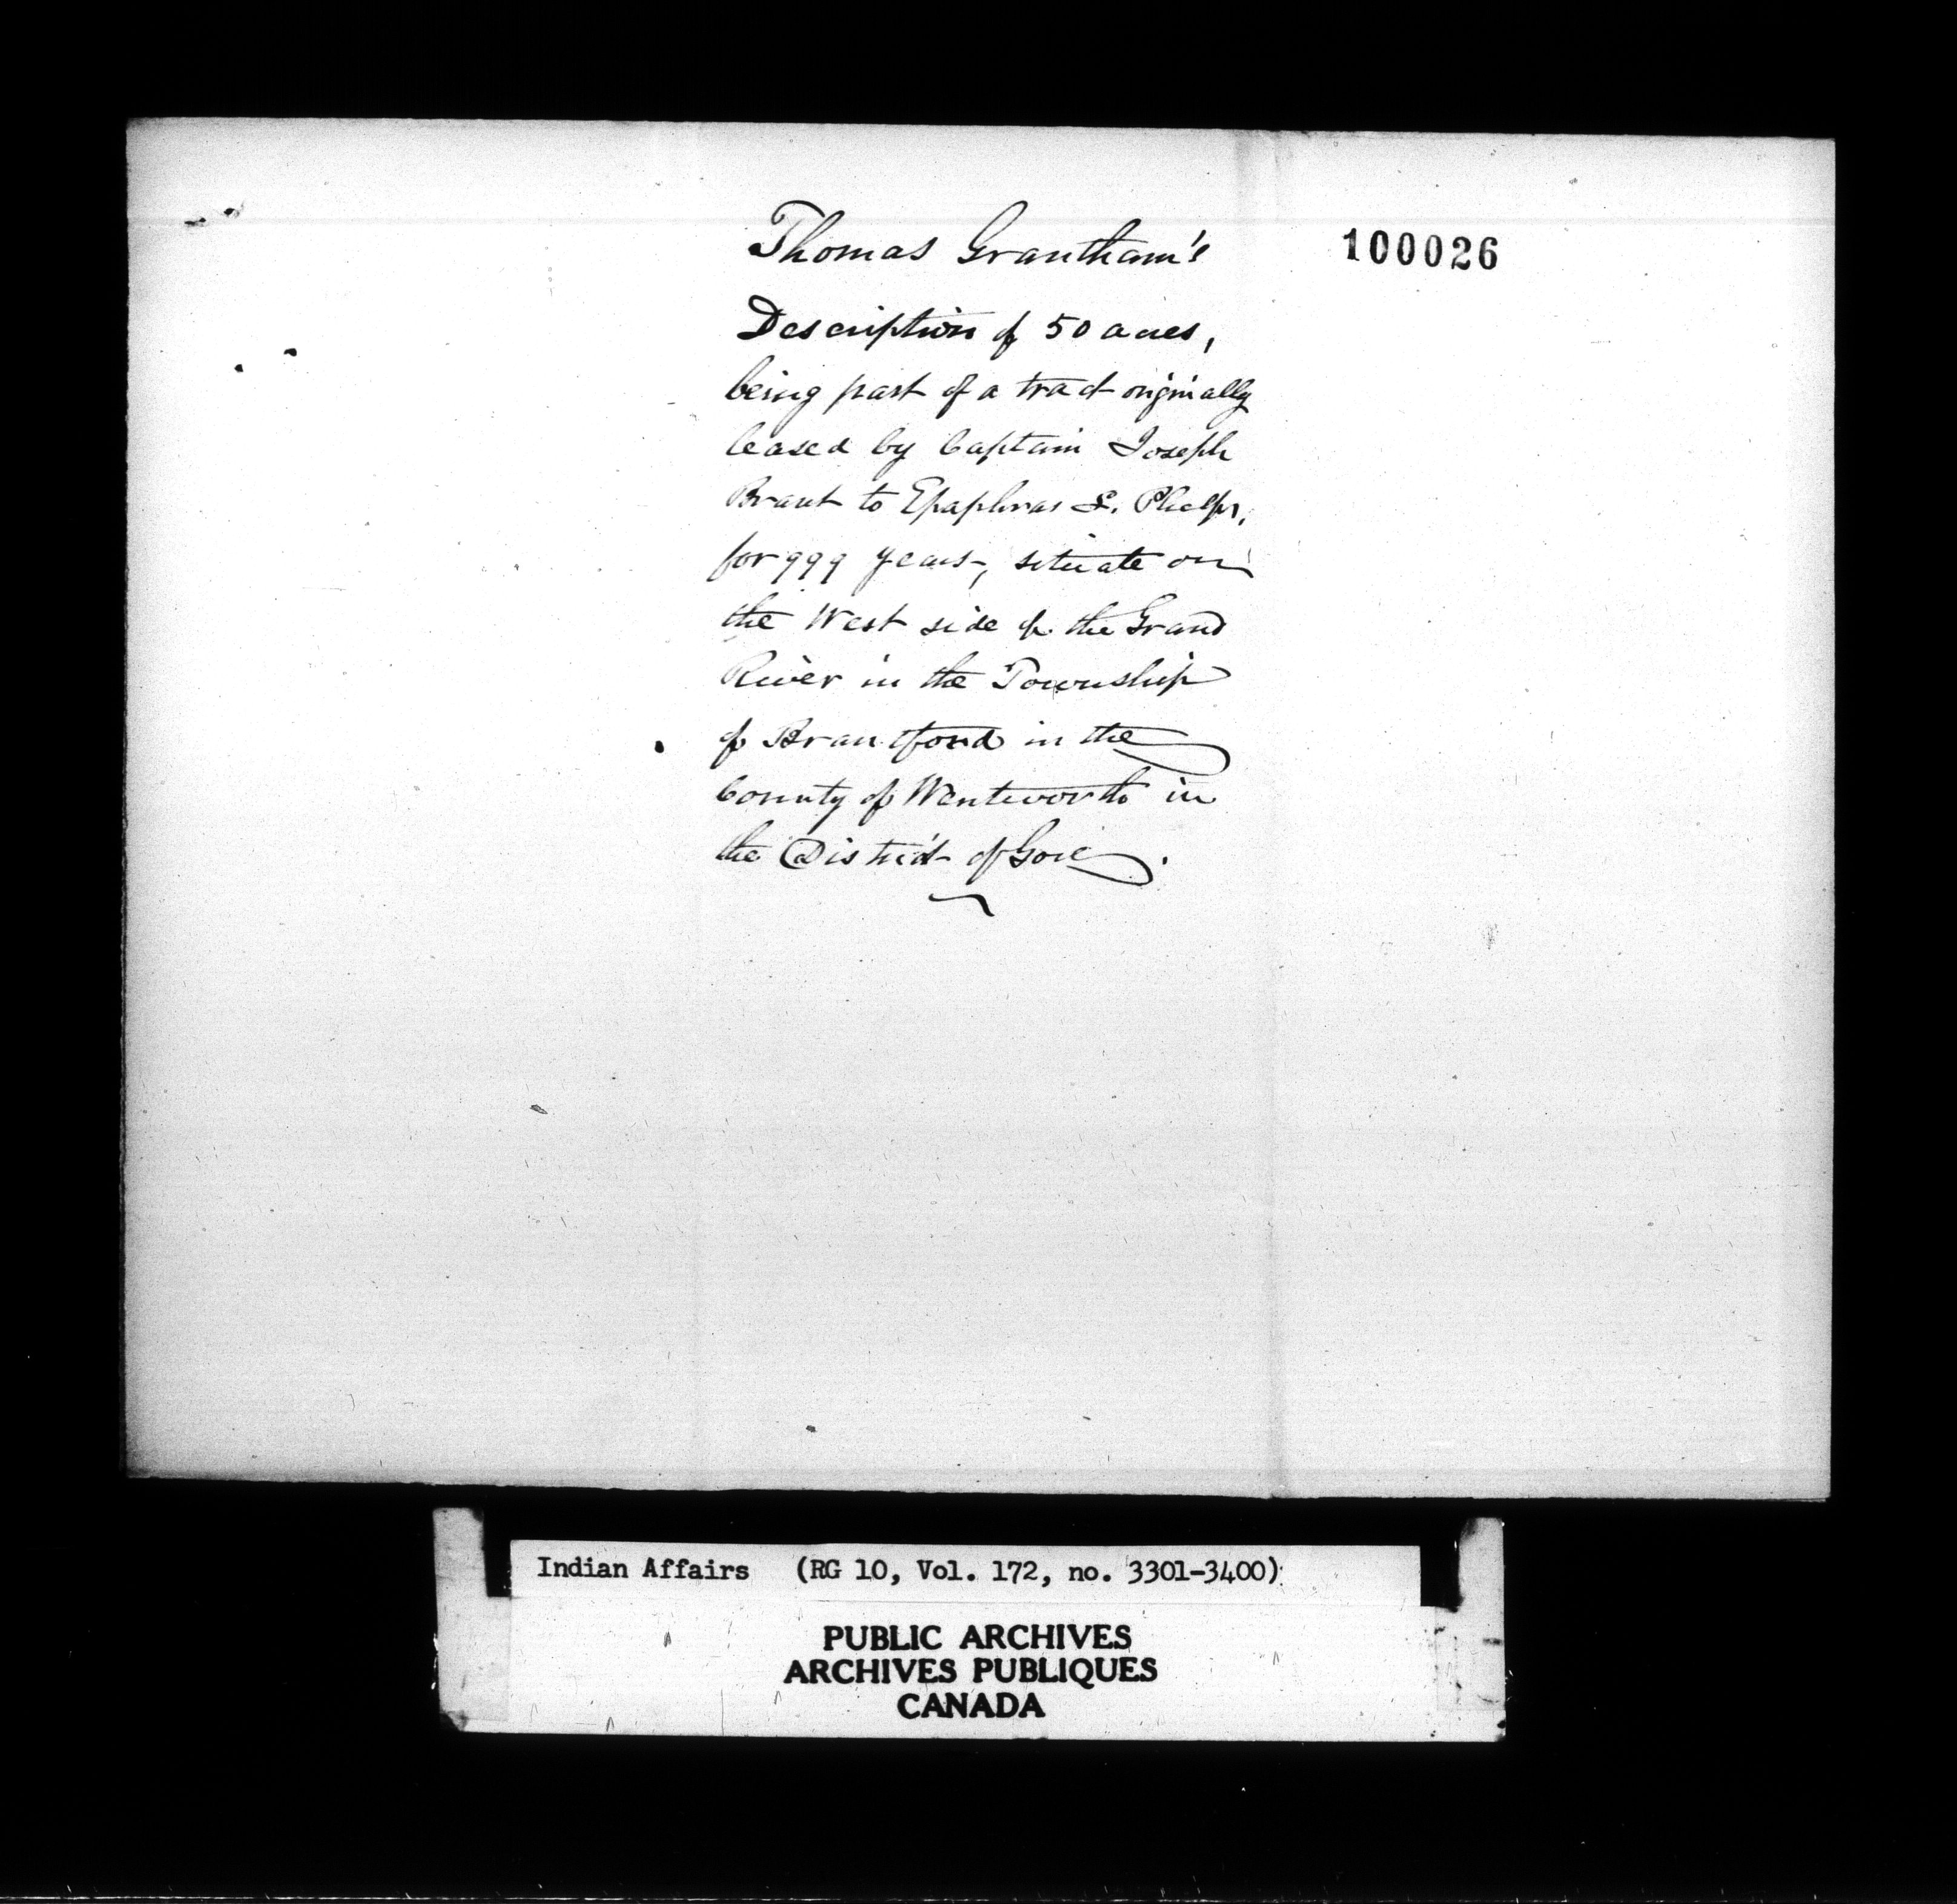 Thomas Grantham's
100026
Description of 50 acres,
being part of a tract originally
leased by Captain Joseph
Brant to Epaphras L. Phelps,
for 999 years, situate on
the West side of the Grand
River in the Township
of Brantford in the
County of Wentworth in
the District of Gore.
Indian Affairs (RG 10, Vol. 172, no. 3301-3400)
PUBLIC ARCHIVES
ARCHIVES PUBLIQUES
CANADA